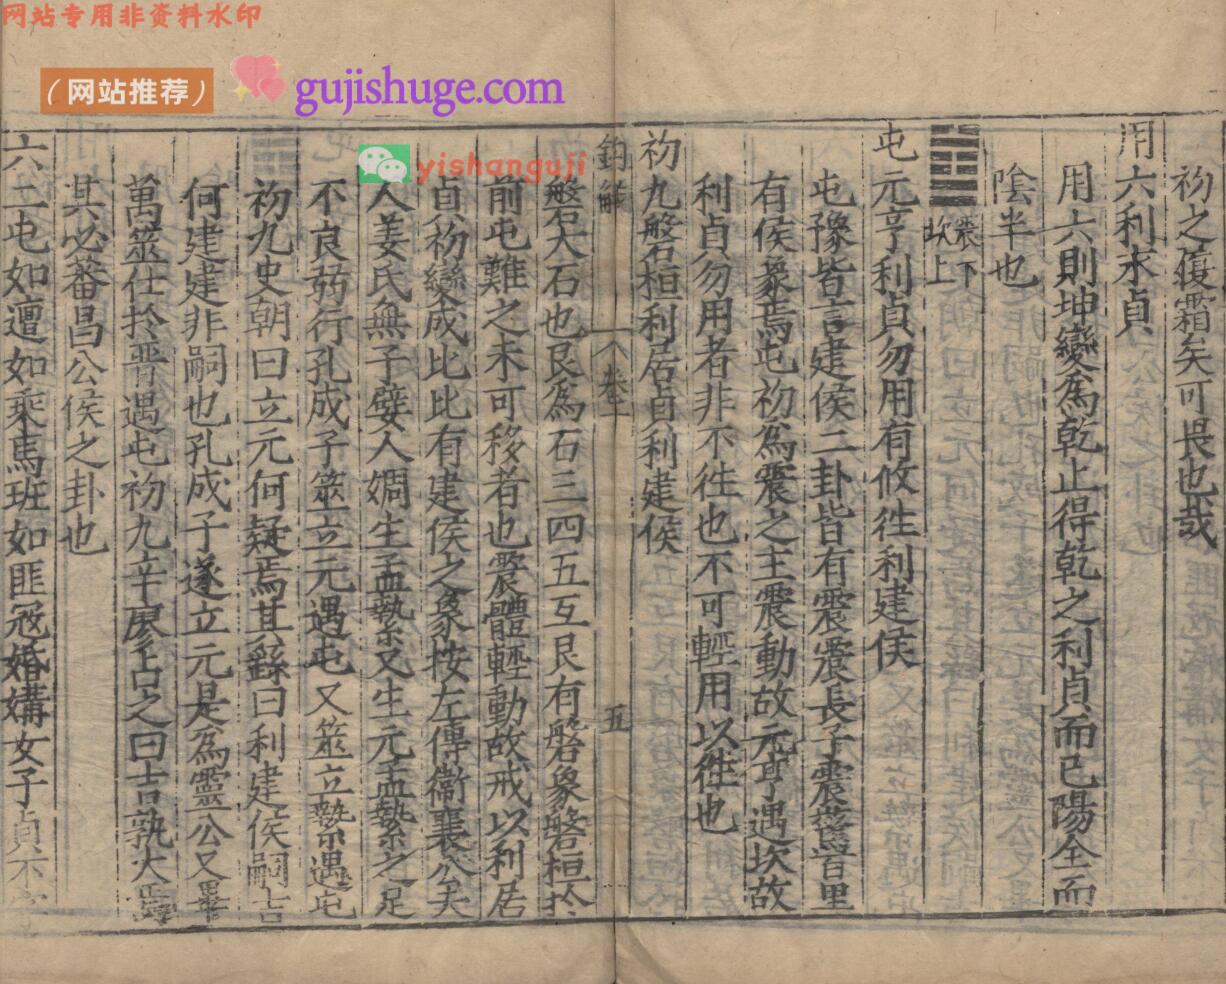 网站专用非资料水印
（网站推荐）
gujishuge.com
yishanguji
初之履霜矣可畏也哉
用六利永貞
用六則坤變為乾止得乾之利貞而已陽全而
陰半也
震下
坎上
屯元亨利貞勿用有攸徃利建侯
屯豫皆言建侯二卦皆有震震長子震驚百里
有侯象焉屯初為震之主震動故元亨遇坎故
利貞勿用者非不徃也不可輕用以徃也
初九磐桓利居貞利建侯
鈎解
卷一
五
磐大石也艮為石三四五互艮有磐象磐桓於
前屯難之未可移者也震體輕動故戒以利居
貞初變成比比有建侯之象按左傳衞襄公夫
人姜氏無子嬖人婤生孟縶又生元孟縶之足
不良弱行孔成子筮立元遇屯又筮立縶遇屯
初九史朝曰立元何疑焉其繇曰利建侯嗣吉
何建建非嗣也孔成子遂立元是為靈公又畢
萬筮仕於晉遇屯初九辛廖占之曰吉孰大焉
其必蕃昌公侯之卦也
六二屯如邅如乘馬班如匪冦婚媾女子貞不字